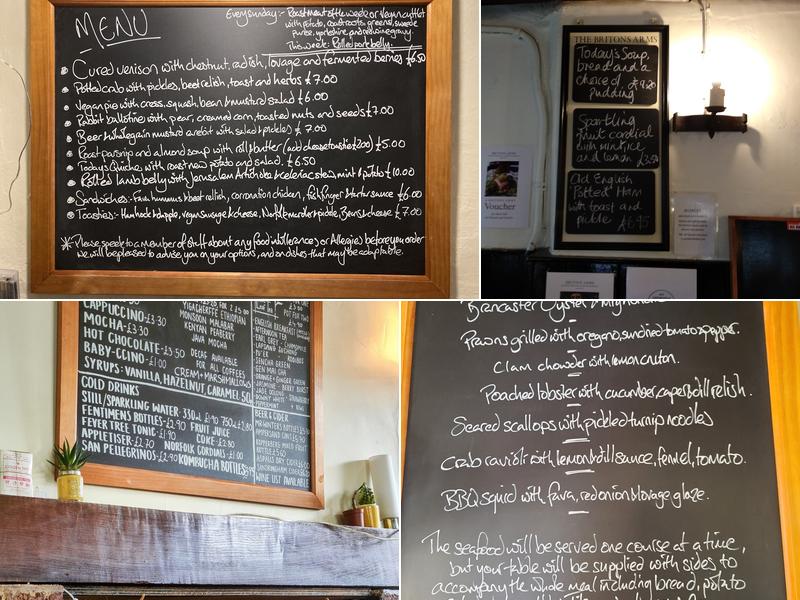 MENU
Every Sunday:- Roast meat of the week or Vegan cutlet
with potato, roast roots, greens, swede
puree, yorkshire, and red wine gravy.
This week: Rolled pork belly.
Cured venison with chestnut, radish, lovage and fermented berries £6.50
Potted crab with pickles, beet relish, toast and herbs £7.00
Vegan pie with cress, squash, bean & mustard salad £6.00
Rabbit ballotine with pear, creamed corn, toasted nuts and seeds £7.00
Beer & wholegrain mustard rarebit with salad & pickles £7.00
Roast parsnip and almond soup with roll/butter (add cheese toastie £2.00) £5.00
Todays Quiche with roast new potato and salad. £6.50
Rolled lamb belly with Jerusalem Artichoke, celeriac stew, mint & potato £10.00
Sandwiches:- Fava hummus & beet relish, coronation chicken, fish finger & tartar sauce £6.00
Toasties:- Ham hock & pickle, vegan sausage & cheese, Beans & cheese £7.00
* Please speak to a member of staff about any food intollerances or Allergies before you order
we will be pleased to advise you on your options, and on dishes that may be adaptable.
THE BRITONS ARMS
Today's Soup,
bread and a
choice of
pudding £9.20
Sparkling
fruit cordial
with mint, ice
and lemon £3.50
Old English
Potted Ham
with toast and
pickle £6.95
Voucher
CAPPUCCINO-£3.30
MOCHA-£3.30
HOT CHOCOLATE-£3.50
BABY-CCINO-£1.00
SYRUPS: VANILLA, HAZELNUT, CARAMEL 50p
YIGACHERFFE ETHIOPIAN
MONSOON MALABAR
KENYAN PEABERRY
JAVA MOCHA
DECAF AVAILABLE
FOR ALL COFFEES
CREAM + MARSHMALLOWS
COLD DRINKS
STILL/SPARKLING WATER-330ml £1.90 750ml £2.80
FENTIMENS BOTTLES-£2.90 FRUIT JUICE
FEVER TREE TONIC £1.90 COKE-£2.80
APPLETISER-£2.70 NORFOLK CORDIALS-£1.00
SAN PELLEGRINOS-£2.90 KOMBUCHA BOTTLES
POT FOR TWO
ENGLISH BREAKFAST
AFTERNOON TEA
EARL GREY
CHAMOMILE
LAPSANG SOUCHONG
ROOIBOS
SENCHA GREEN
GEN MAI CHA
ORANGE + GINGER GREEN
JASMINE
BERRY BURST
PEPPERMINT
BEER & CIDER
MR WINTERS BOTTLES
ASPALLS DRY CIDER
SANDRINGHAM CIDER
WINE LIST AVAILABLE
Brancaster Oyster & Mignonette
Prawns grilled with oregano, sundried tomato & pepper.
Clam chowder with lemon crouton.
Poached lobster with cucumber, caper & dill relish.
Seared scallops with pickled turnip noodles
Crab ravioli with lemon & dill sauce, fennel, tomato.
BBQ squid with fava, red onion & lovage glaze.
The seafood will be served one course at a time,
but your table will be supplied with sides to
accompany the whole meal including bread, potato